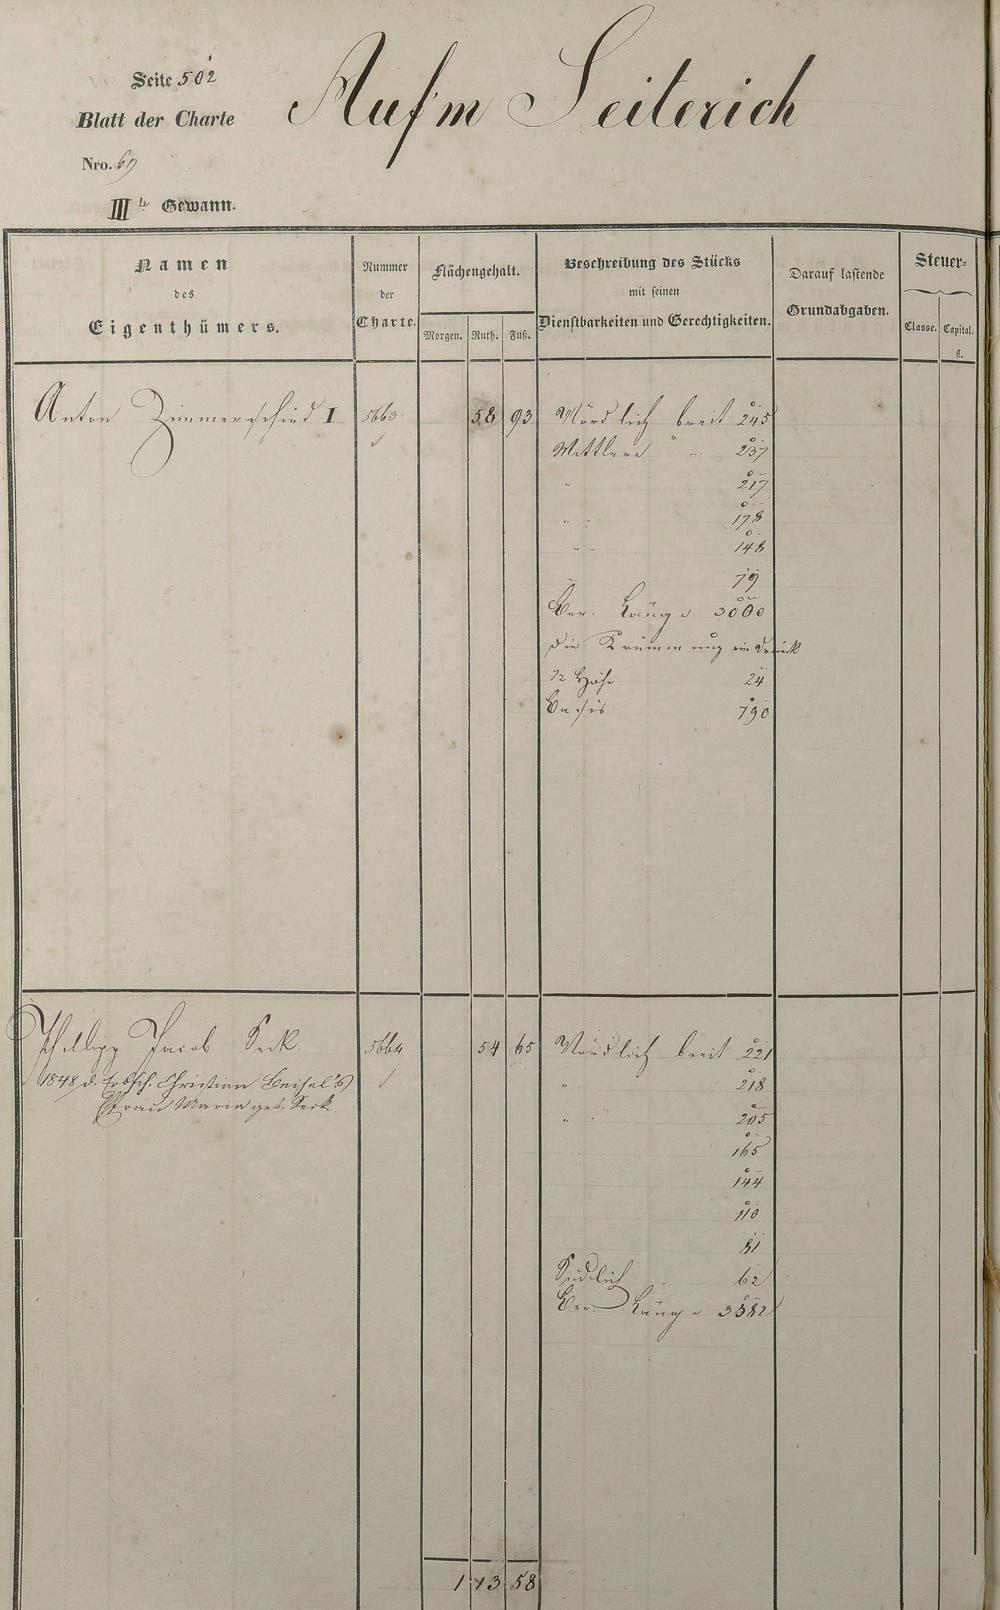 Seite 502
Auf'm Seiterich
Blatt der Charte
Nro. 67
III te Gewann.
Namen des Eigenthümers.
Nummer der Charte.
Flächengehalt.
Morgen. Ruth. Fuß.
Beschreibung des Stücks mit seinen Dienstbarkeiten und Gerechtigkeiten.
Darauf lastende Grundabgaben.
Steuer=
Classe. Capital. fl.
Anton Zimmerschied I 5663 58 93 Nördlich breit 245
Mittlere " 237
" 217
" " 178
" " 148
" 79
Ber. Länge 3000
die Krümmung ein Dreieck
1/2 Höhe 24
Basis 790
Philipp Jacob Seck 5664 54 65 Nördlich breit 221
1848 d. Erbsch. Christian Beisel's " 218
Frau Maria geb. Seck. " 205
165
144
110
81
Südlich 62
Ber. Länge 3582
1 13 58